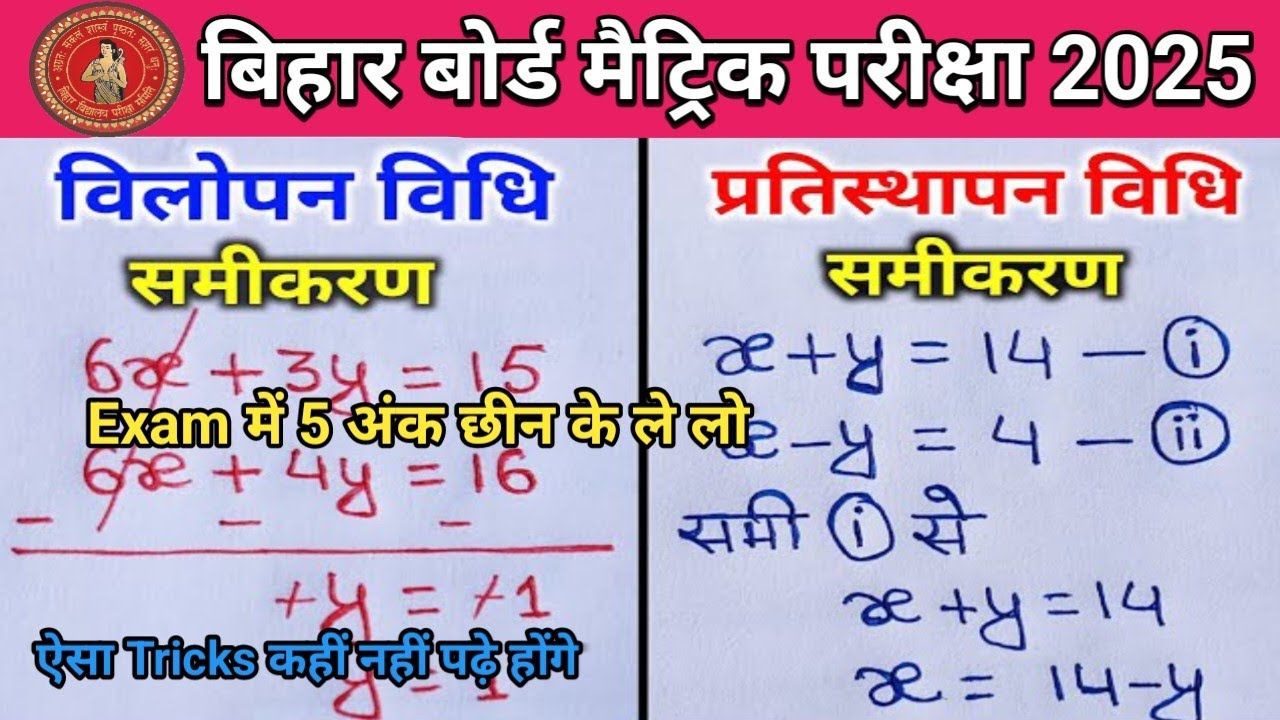 बिहार बोर्ड मैट्रिक परीक्षा 2025
विलोपन विधि
समीकरण
6x + 3y = 15
Exam में 5 अंक छीन के ले लो
6x + 4y = 16
- - -
+y = +1
ऐसा Tricks कहीं नहीं पढ़े होंगे
y = 1
प्रतिस्थापन विधि
समीकरण
x + y = 14 — (i)
x - y = 4 — (ii)
समी (i) से
x + y = 14
x = 14 - y